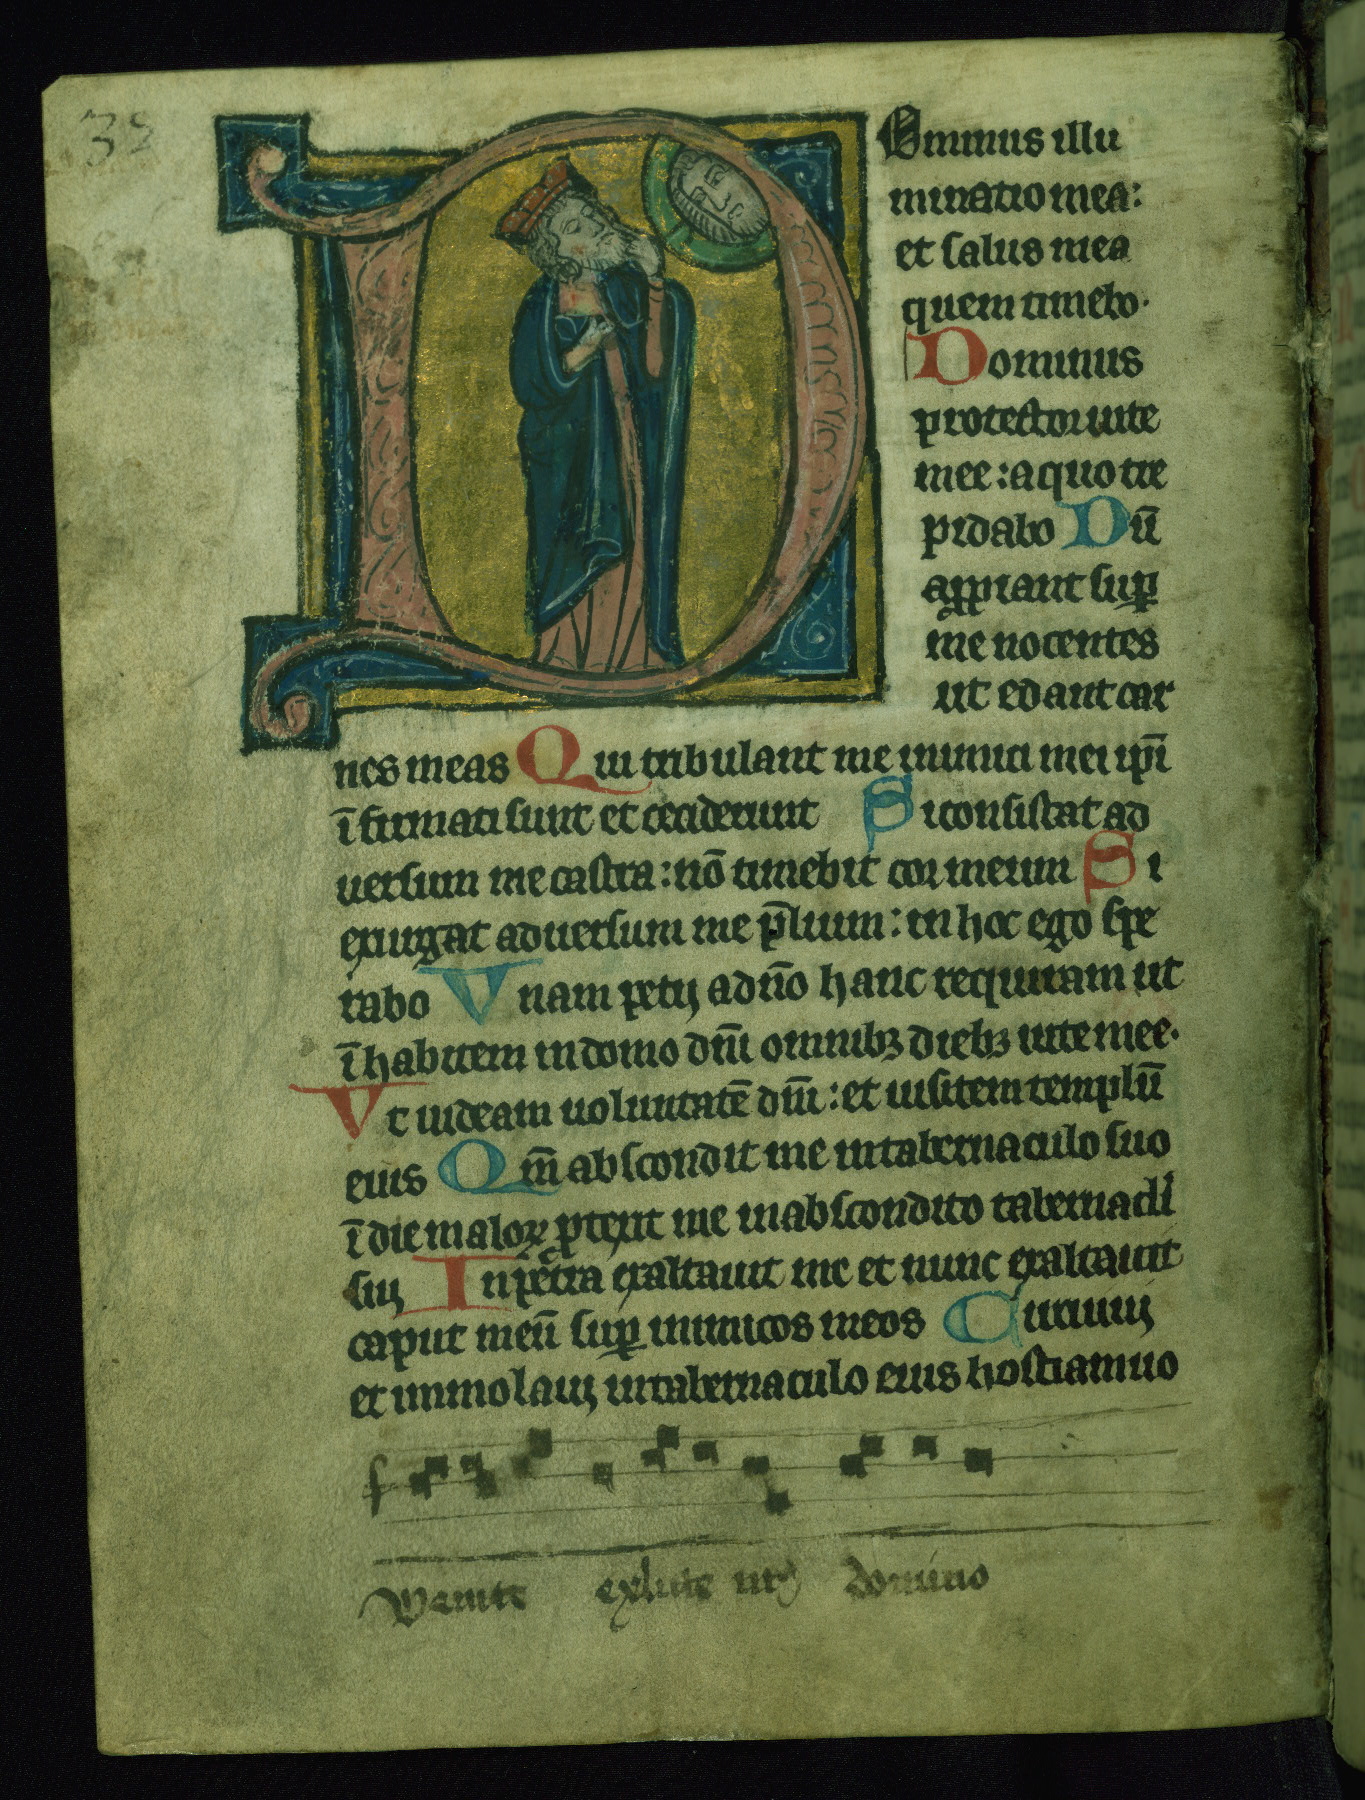 32
Ominus illu
minatio mea:
et salus mea
quem timebo.
Dominus
protector uite
mee: a quo tre
pidabo Dū
appiant sup
me nocentes
ut edant car
nes meas Qui tribulant me inimici mei ipī
īfirmati sunt et ceciderunt Si consistat ad
uersum me castra: nō timebit cor meum Si
exurgat aduersum me plium: in hoc ego spe
rabo Vnam petij a dño hanc requiram ut
īhabitem in domo dñi omnibꝫ diebꝫ uite mee.
Vt uideam uoluntatē dñi: et uisitem templū
eius Qm̄ abscondit me in tabernaculo suo
ī die maloꝝ ꝓtexit me in abscondito tabernacli
sui In petra exaltauit me et nunc exaltauit
caput meū sup inimicos meos Circuiuj
et immolauj in tabernaculo eius hostiam uo
Venite domino